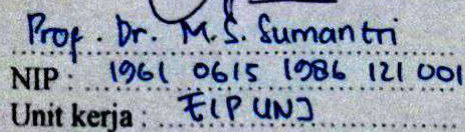 Prof. Dr. M.S. Sumantri
NIP : 1961 0615 1986 121 001
Unit kerja : FIP UNJ